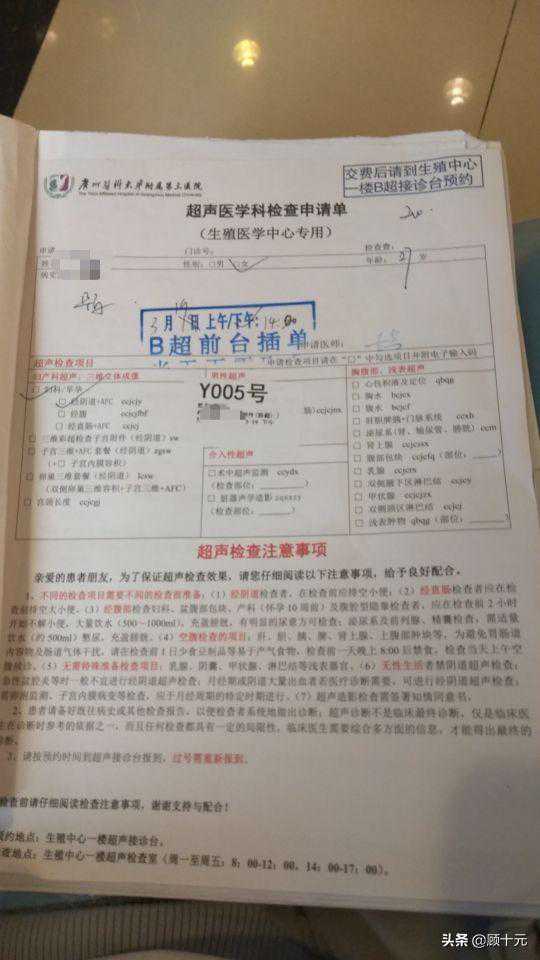 广州医科大学附属第三医院
The Third Affiliated Hospital of Guangzhou Medical University
交费后请到生殖中心
一楼B超接诊台预约
超声医学科检查申请单
（生殖医学中心专用）
申请
门诊号：
检查费：
姓名
性别：□男 □女
年龄：27岁
病史
3月19日上午/下午：14:00
B超前台插单
申请医师：
超声检查项目
申请检查项目请在“□”中勾选项目并附电子输入码
妇产科超声：三维立体成像
□ 妇科/早孕
□ 经阴道+AFC ccjcjy
□ 经腹 ccjcjfbf
□ 经直肠+AFC ccjcj
□ 三维彩超检查子宫附件（经阴道）sw
□ 子宫三维+AFC 套餐（经阴道）zgsw
（+□ 子宫内膜容积）
□ 卵巢三维套餐（经阴道） lcsw
（双侧卵巢三维容积+子宫三维+AFC）
□ 宫颈长度 ccjcgj
男性超声
Y005号
介入性超声
□术中超声监测 ccydx
（检查部位：______）
□ 脏器声学造影 zqsxzy
（检查部位：______）
胸腹部、浅表超声
□ 心包积液及定位 qbqg
□ 胸水 bcjcx
□ 腹水 bcjcf
□ 肝胆胰脾+门脉系统 ccxh
□ 泌尿系（肾、输尿管、膀胱）ccm
□ 肾上腺 ccjcssx
□ 腹部包块 ccjcfq（部位：______）
□ 乳腺 ccjcrx
□ 双侧腋下区淋巴结 ccjcy
□ 甲状腺 ccjcjzx
□ 双侧颈区淋巴结 ccjcj
□ 浅表肿物 qbqg（部位：______）
超声检查注意事项
亲爱的患者朋友，为了保证超声检查效果，请您仔细阅读以下注意事项，给予良好配合。
1、不同的检查项目需要不同的检查前准备：（1）经阴道检查者，在检查前应排空小便；（2）经直肠检查者应在检
查前排空大小便。（3）经腹部检查妇科、盆腹部包块、产科（怀孕10周前）及腹腔型隐睾检查者，应在检查前2小时
开始不解小便，大量饮水（500－1000ml），充盈膀胱，有明显的尿意方可检查；泌尿系及前列腺、精囊检查，需适量
饮水（约500ml）憋尿，充盈膀胱。（4）空腹检查的项目：肝、胆、胰、脾、肾上腺、上腹部肿块等，为避免胃肠道
内容物及肠道气体干扰，请在检查前1日少食豆制品等易于产气食物，检查前一天晚上8:00后禁食，检查当天上午空
腹候诊。（5）无需特殊准备检查项目：乳腺、阴囊、甲状腺、淋巴结等浅表器官。（6）无性生活者禁阴道超声检查；
急性盆腔炎等时一般不宜进行经阴道超声检查；月经期或阴道大量出血者若医疗诊断需要，可进行经阴道超声检查；
前卵泡监测、子宫内膜病变等检查，应于月经周期的特定时期进行。（7）超声造影检查需签署知情同意书。
2、患者请备好既往病史或其他检查报告，以便检查者系统地做出诊断；超声诊断不是临床最终诊断，仅是临床医
生在诊断时参考的依据之一，而且任何检查都具有一定的局限性，临床医生需要综合多方面的信息，才能得出最终的
诊断。
3、请按预约时间到超声接诊台报到，过号需重新报到。
检查前请仔细阅读检查注意事项，谢谢支持与配合！
预约地点：生殖中心一楼超声接诊台。
检查地点：生殖中心一楼超声检查室（周一至周五：8：00-12：00，14：00-17：00）。
头条 @顾十元